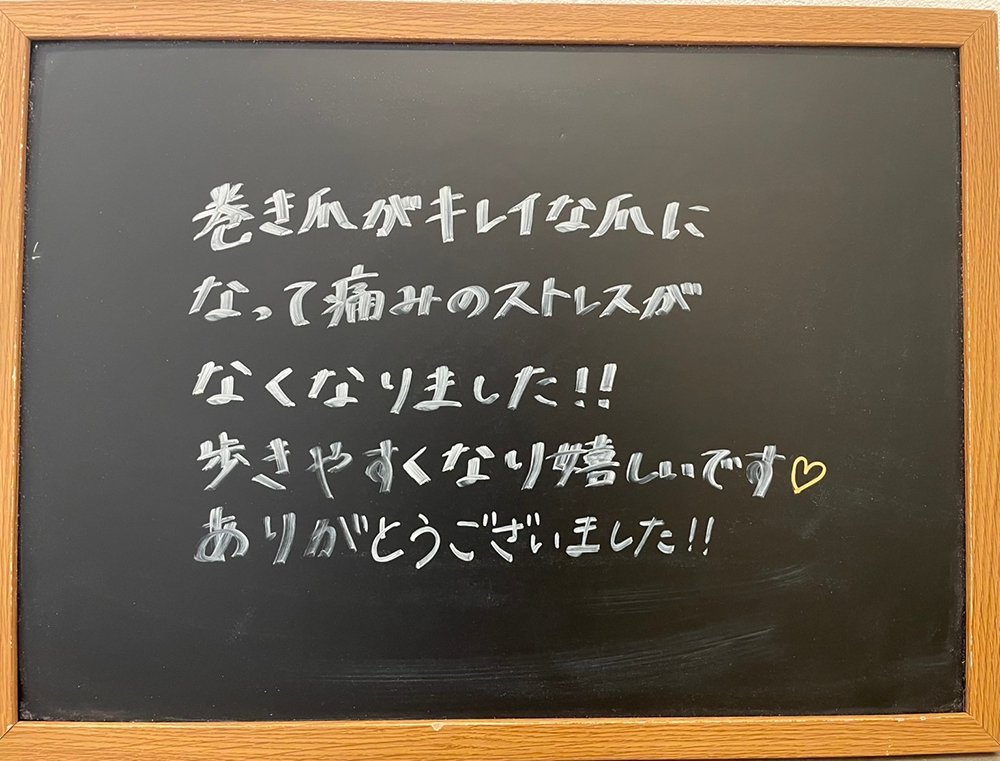 巻き爪がキレイな爪に
なって痛みのストレスが
なくなりました!!
歩きやすくなり嬉しいです♡
ありがとうございました!!